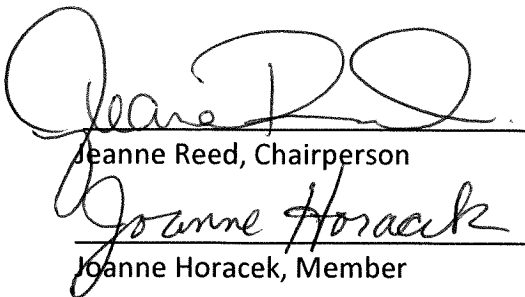 Jeanne Reed
Jeanne Reed, Chairperson
Joanne Horacek
Joanne Horacek, Member